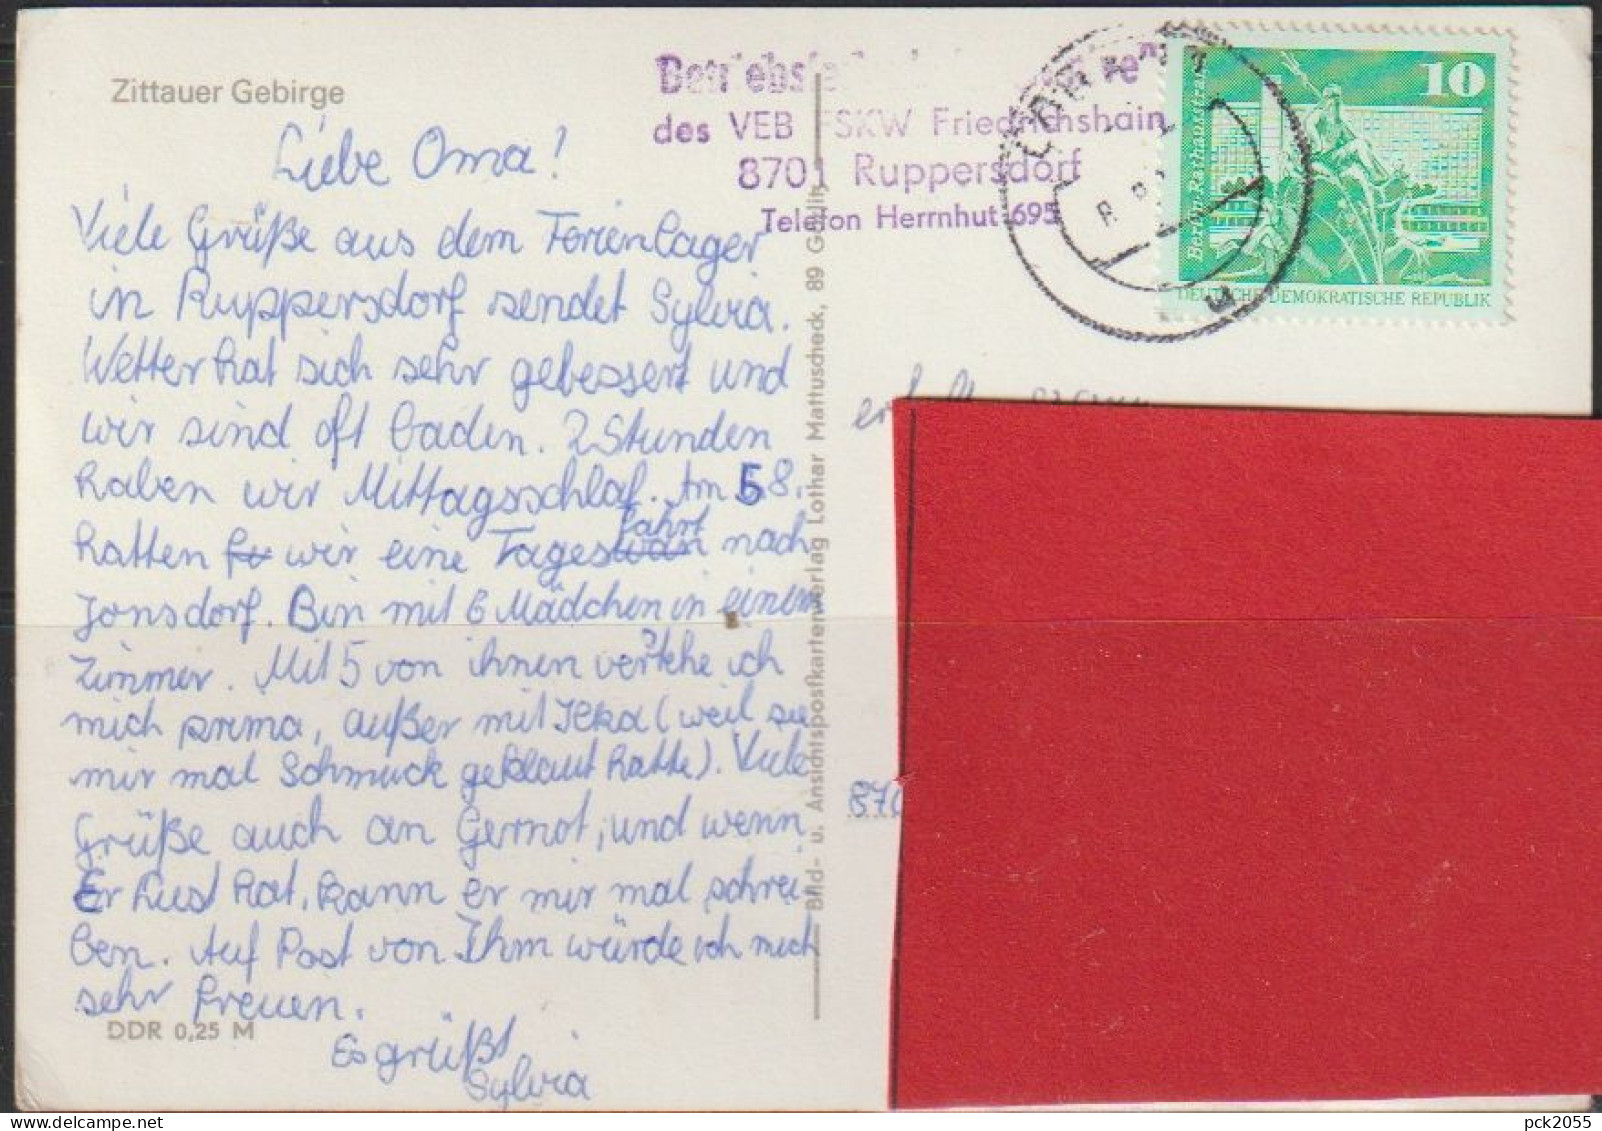 Zittauer Gebirge
Liebe Oma!
Viele Grüße aus dem Ferienlager
in Ruppersdorf sendet Sylvia.
Wetter hat sich sehr gebessert und
wir sind oft baden. 2 Stunden
haben wir Mittagsschlaf. Am 5.8.
hatten wir eine Tagesfahrt nach
Jonsdorf. Bin mit 6 Mädchen in einem
Zimmer. Mit 5 von ihnen verstehe ich
mich prima, außer mit Ilka (weil sie
mir mal Schmuck geklaut hatte). Viele
Grüße auch an Gernot, und wenn
Er Lust hat, kann er mir mal schrei-
ben. Auf Post von Ihm würde ich mich
sehr freuen.
Es grüßt
Sylvia
DDR 0,25 M
Bild- u. Ansichtspostkartenverlag Lothar Mattuscheck, 89 Görlitz
des VEB FSKW Friedrichshain
8701 Ruppersdorf
Telefon Herrnhut 695
10
Berlin-Rathausstraße
DEUTSCHE DEMOKRATISCHE REPUBLIK
870
pck2055